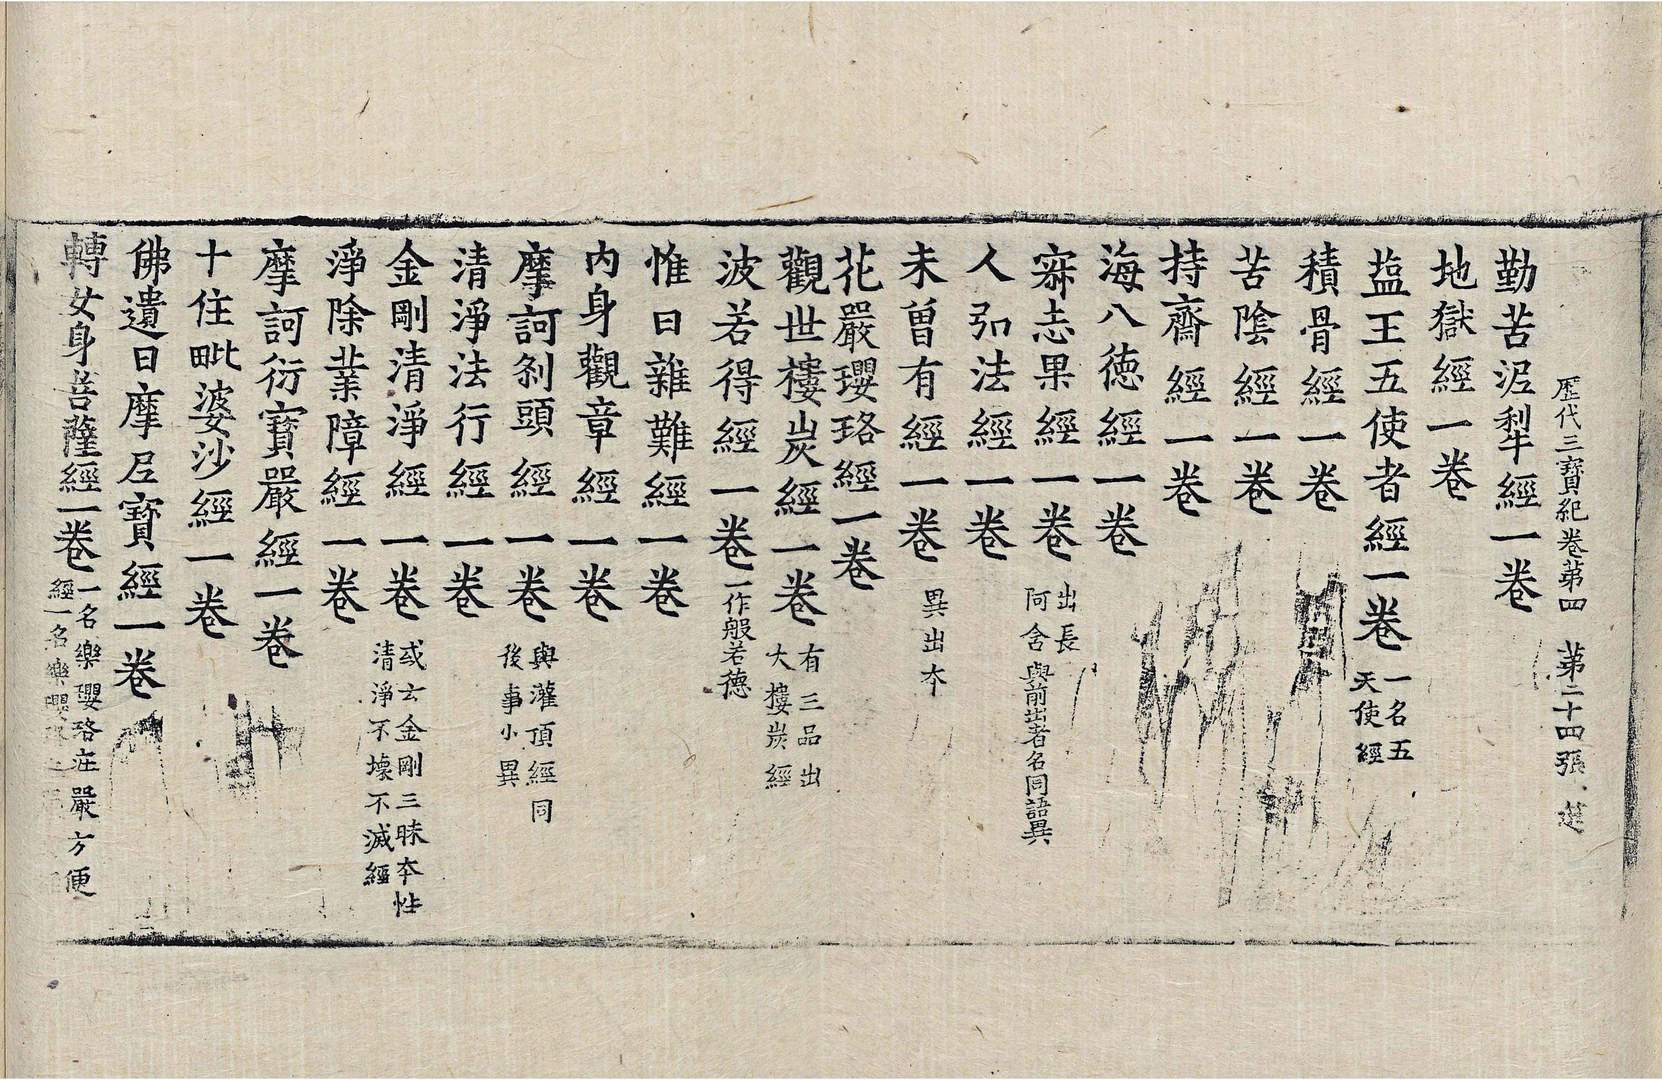 歷代三寶紀卷苐四　苐二十四張　楚
勤苦泥犁經一卷
地獄經一卷
塩王五使者經一卷 一名五天使經
積骨經一卷
苦陰經一卷
持齋經一卷
海八徳經一卷
㝥志果經一卷 出長阿含與前出者名同語異
人弘法經一卷
未曽有經一卷 異出夲
花嚴瓔珞經一卷
觀世樓炭經一卷 有三品出大樓炭經
波若得經一卷 一作般若德
惟日雜難經一卷
內身觀章經一卷
摩訶剎頭經一卷 與灌頂經同後事小異
清淨法行經一卷
金剛清淨經一卷 或云金剛三昧夲性清淨不壊不滅經
淨除業障經一卷
摩訶衍寶嚴經一卷
十住毗婆沙經一卷
佛遺日摩尼寶經一卷
轉女身菩薩經一卷 一名樂瓔珞莊嚴方便經一名樂瓔珞